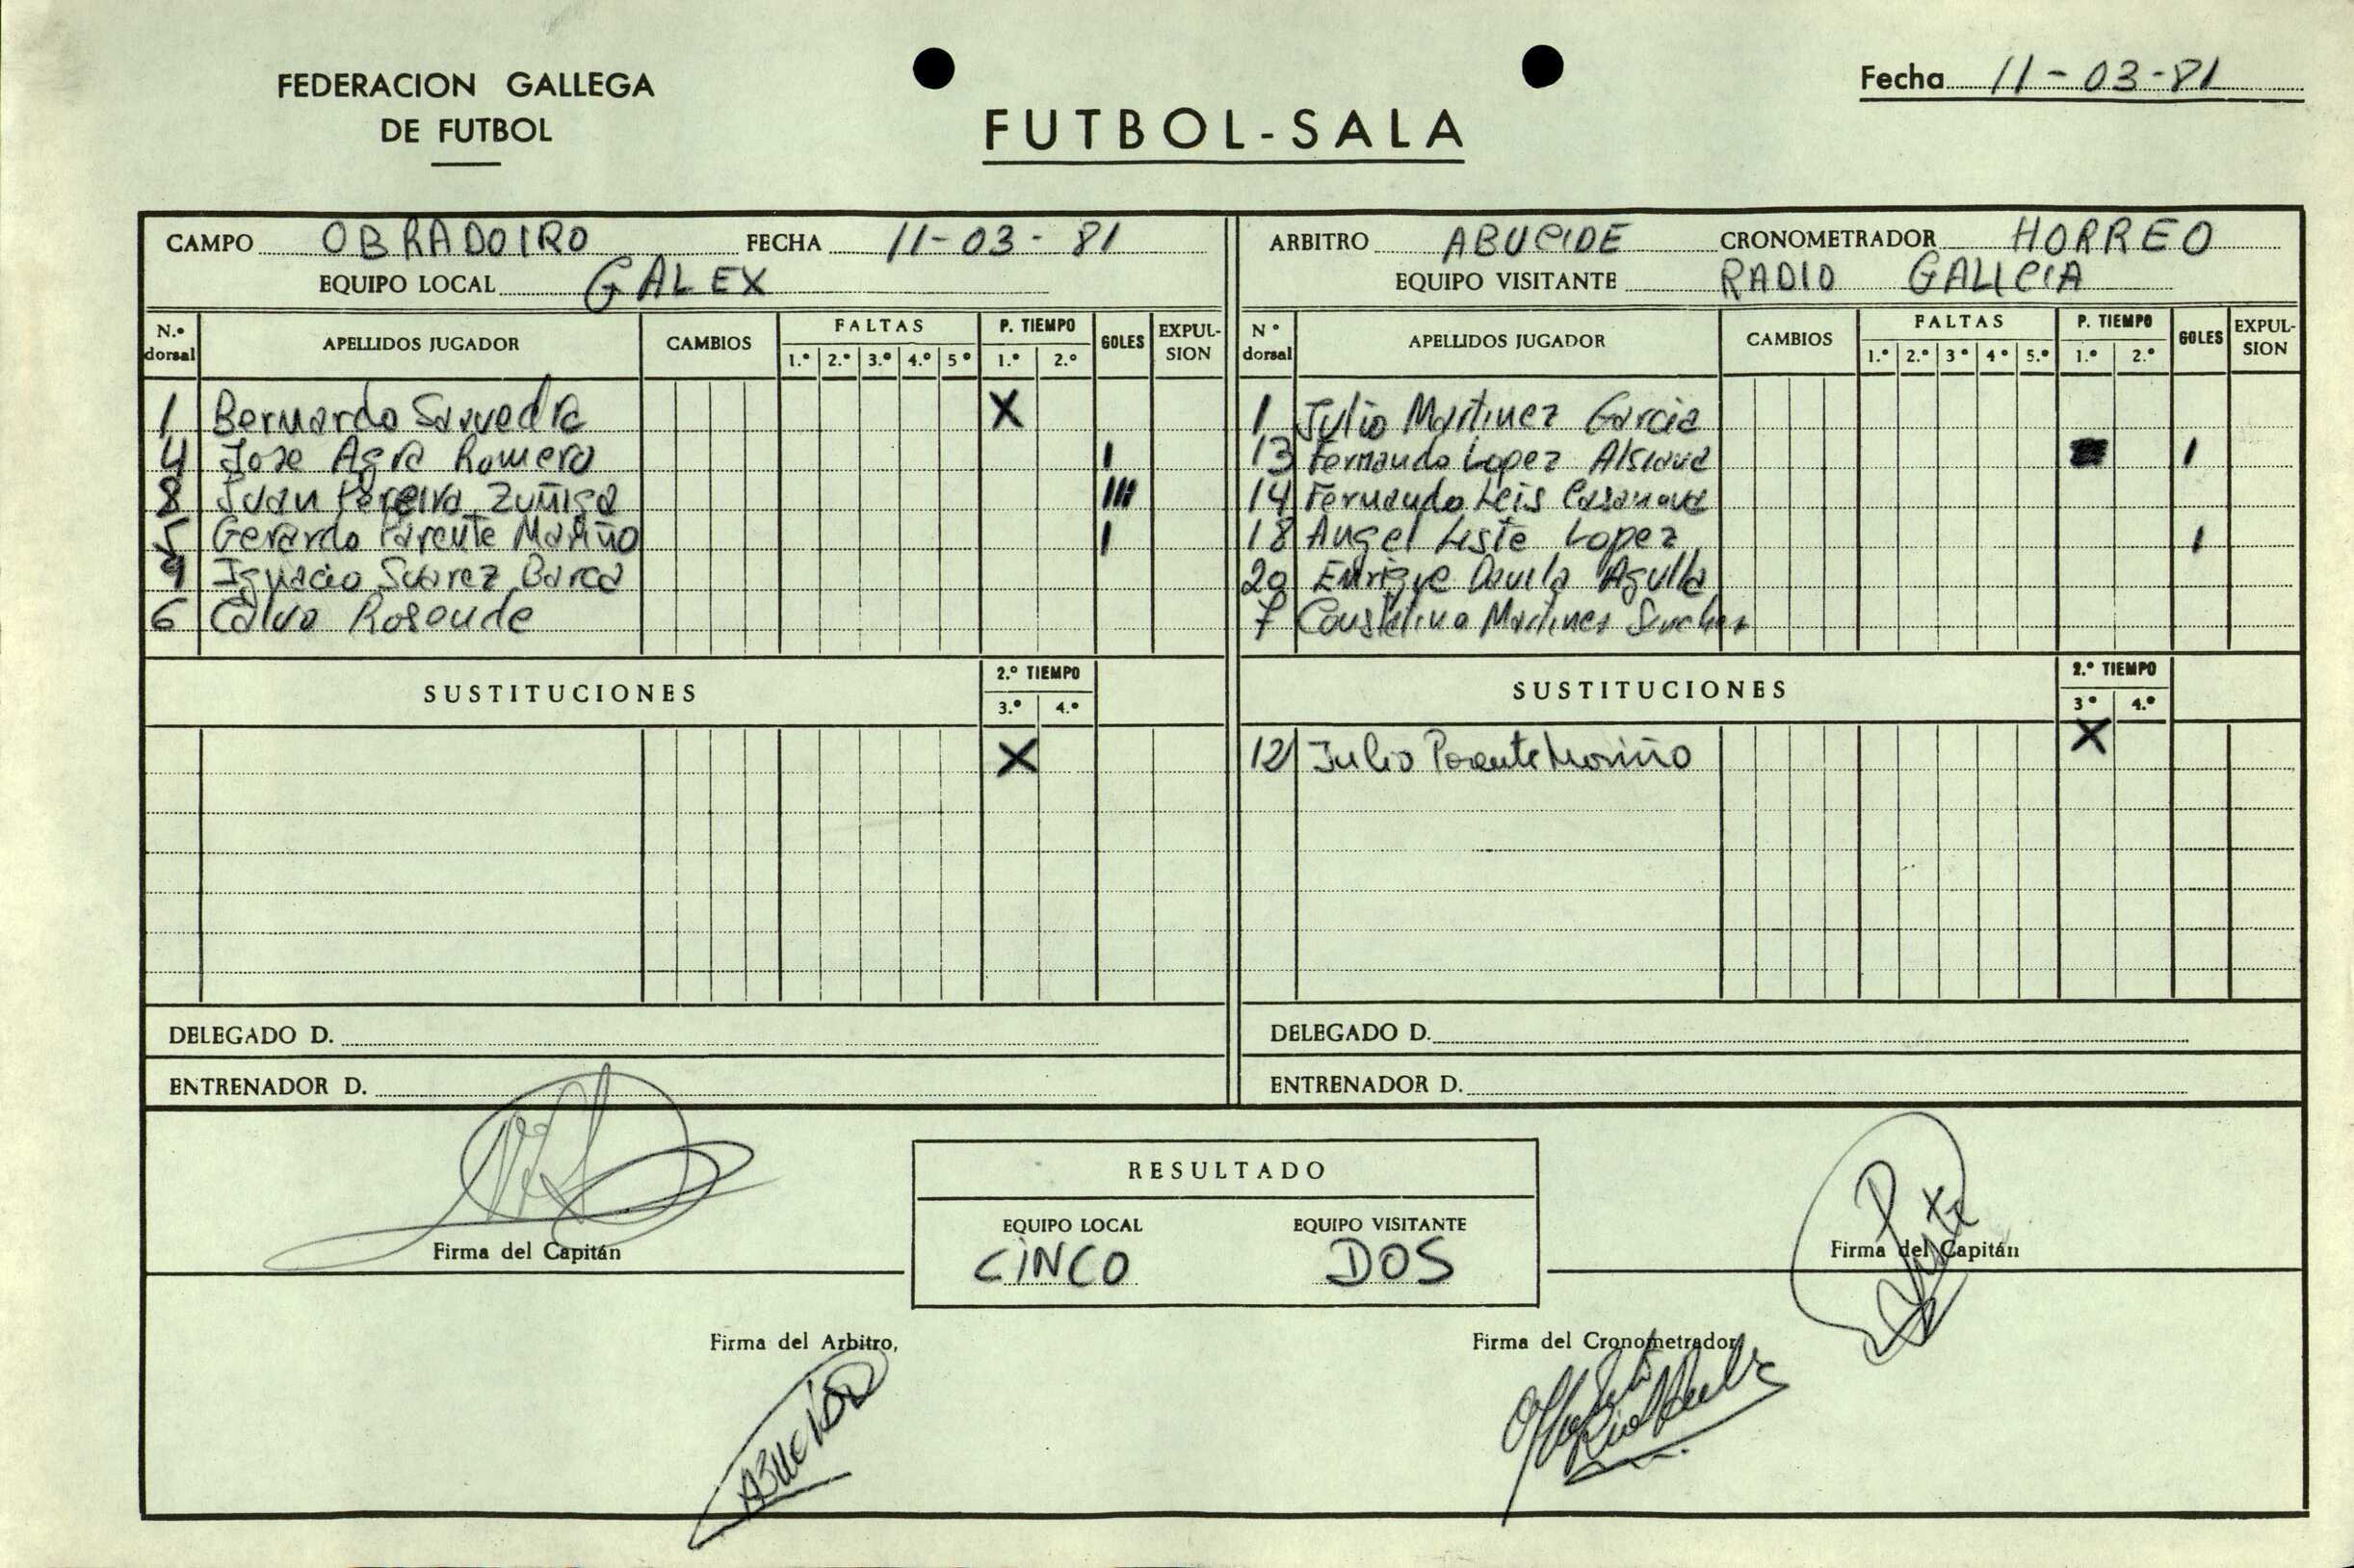 FEDERACION GALLEGA
DE FUTBOL
FUTBOL-SALA
Fecha 11-03-81
CAMPO OBRADOIRO FECHA 11-03-81
EQUIPO LOCAL GALEX
N.º dorsal APELLIDOS JUGADOR CAMBIOS FALTAS 1.º 2.º 3.º 4.º 5º P. TIEMPO 1.º 2.º GOLES EXPUL-SION
1 Bernardo Saavedra X
4 Jose Agra Romero I
8 Juan Pereira Zuñiga III
5 Gerardo Parente Mariño I
9 Ignacio Suarez Barca
6 Calvo Rosende
SUSTITUCIONES 2.º TIEMPO 3.º 4.º
X
DELEGADO D.
ENTRENADOR D.
ARBITRO ABUCIDE CRONOMETRADOR HORREO
EQUIPO VISITANTE RADIO GALICIA
Nº dorsal APELLIDOS JUGADOR CAMBIOS FALTAS 1.º 2.º 3º 4º 5.º P. TIEMPO 1.º 2.º GOLES EXPUL-SION
1 Julio Martinez Garcia
13 Fernando Lopez I
14 Fernando Leis Casanova
18 Angel Liste Lopez I
20 Enrique Davila
7 Martinez Sanchez
SUSTITUCIONES 2.º TIEMPO 3º 4.º
12 Julio Parente Mariño X
DELEGADO D.
ENTRENADOR D.
Firma del Capitán
RESULTADO
EQUIPO LOCAL EQUIPO VISITANTE
CINCO DOS
Firma del Capitán
Firma del Arbitro,
Firma del Cronometrador